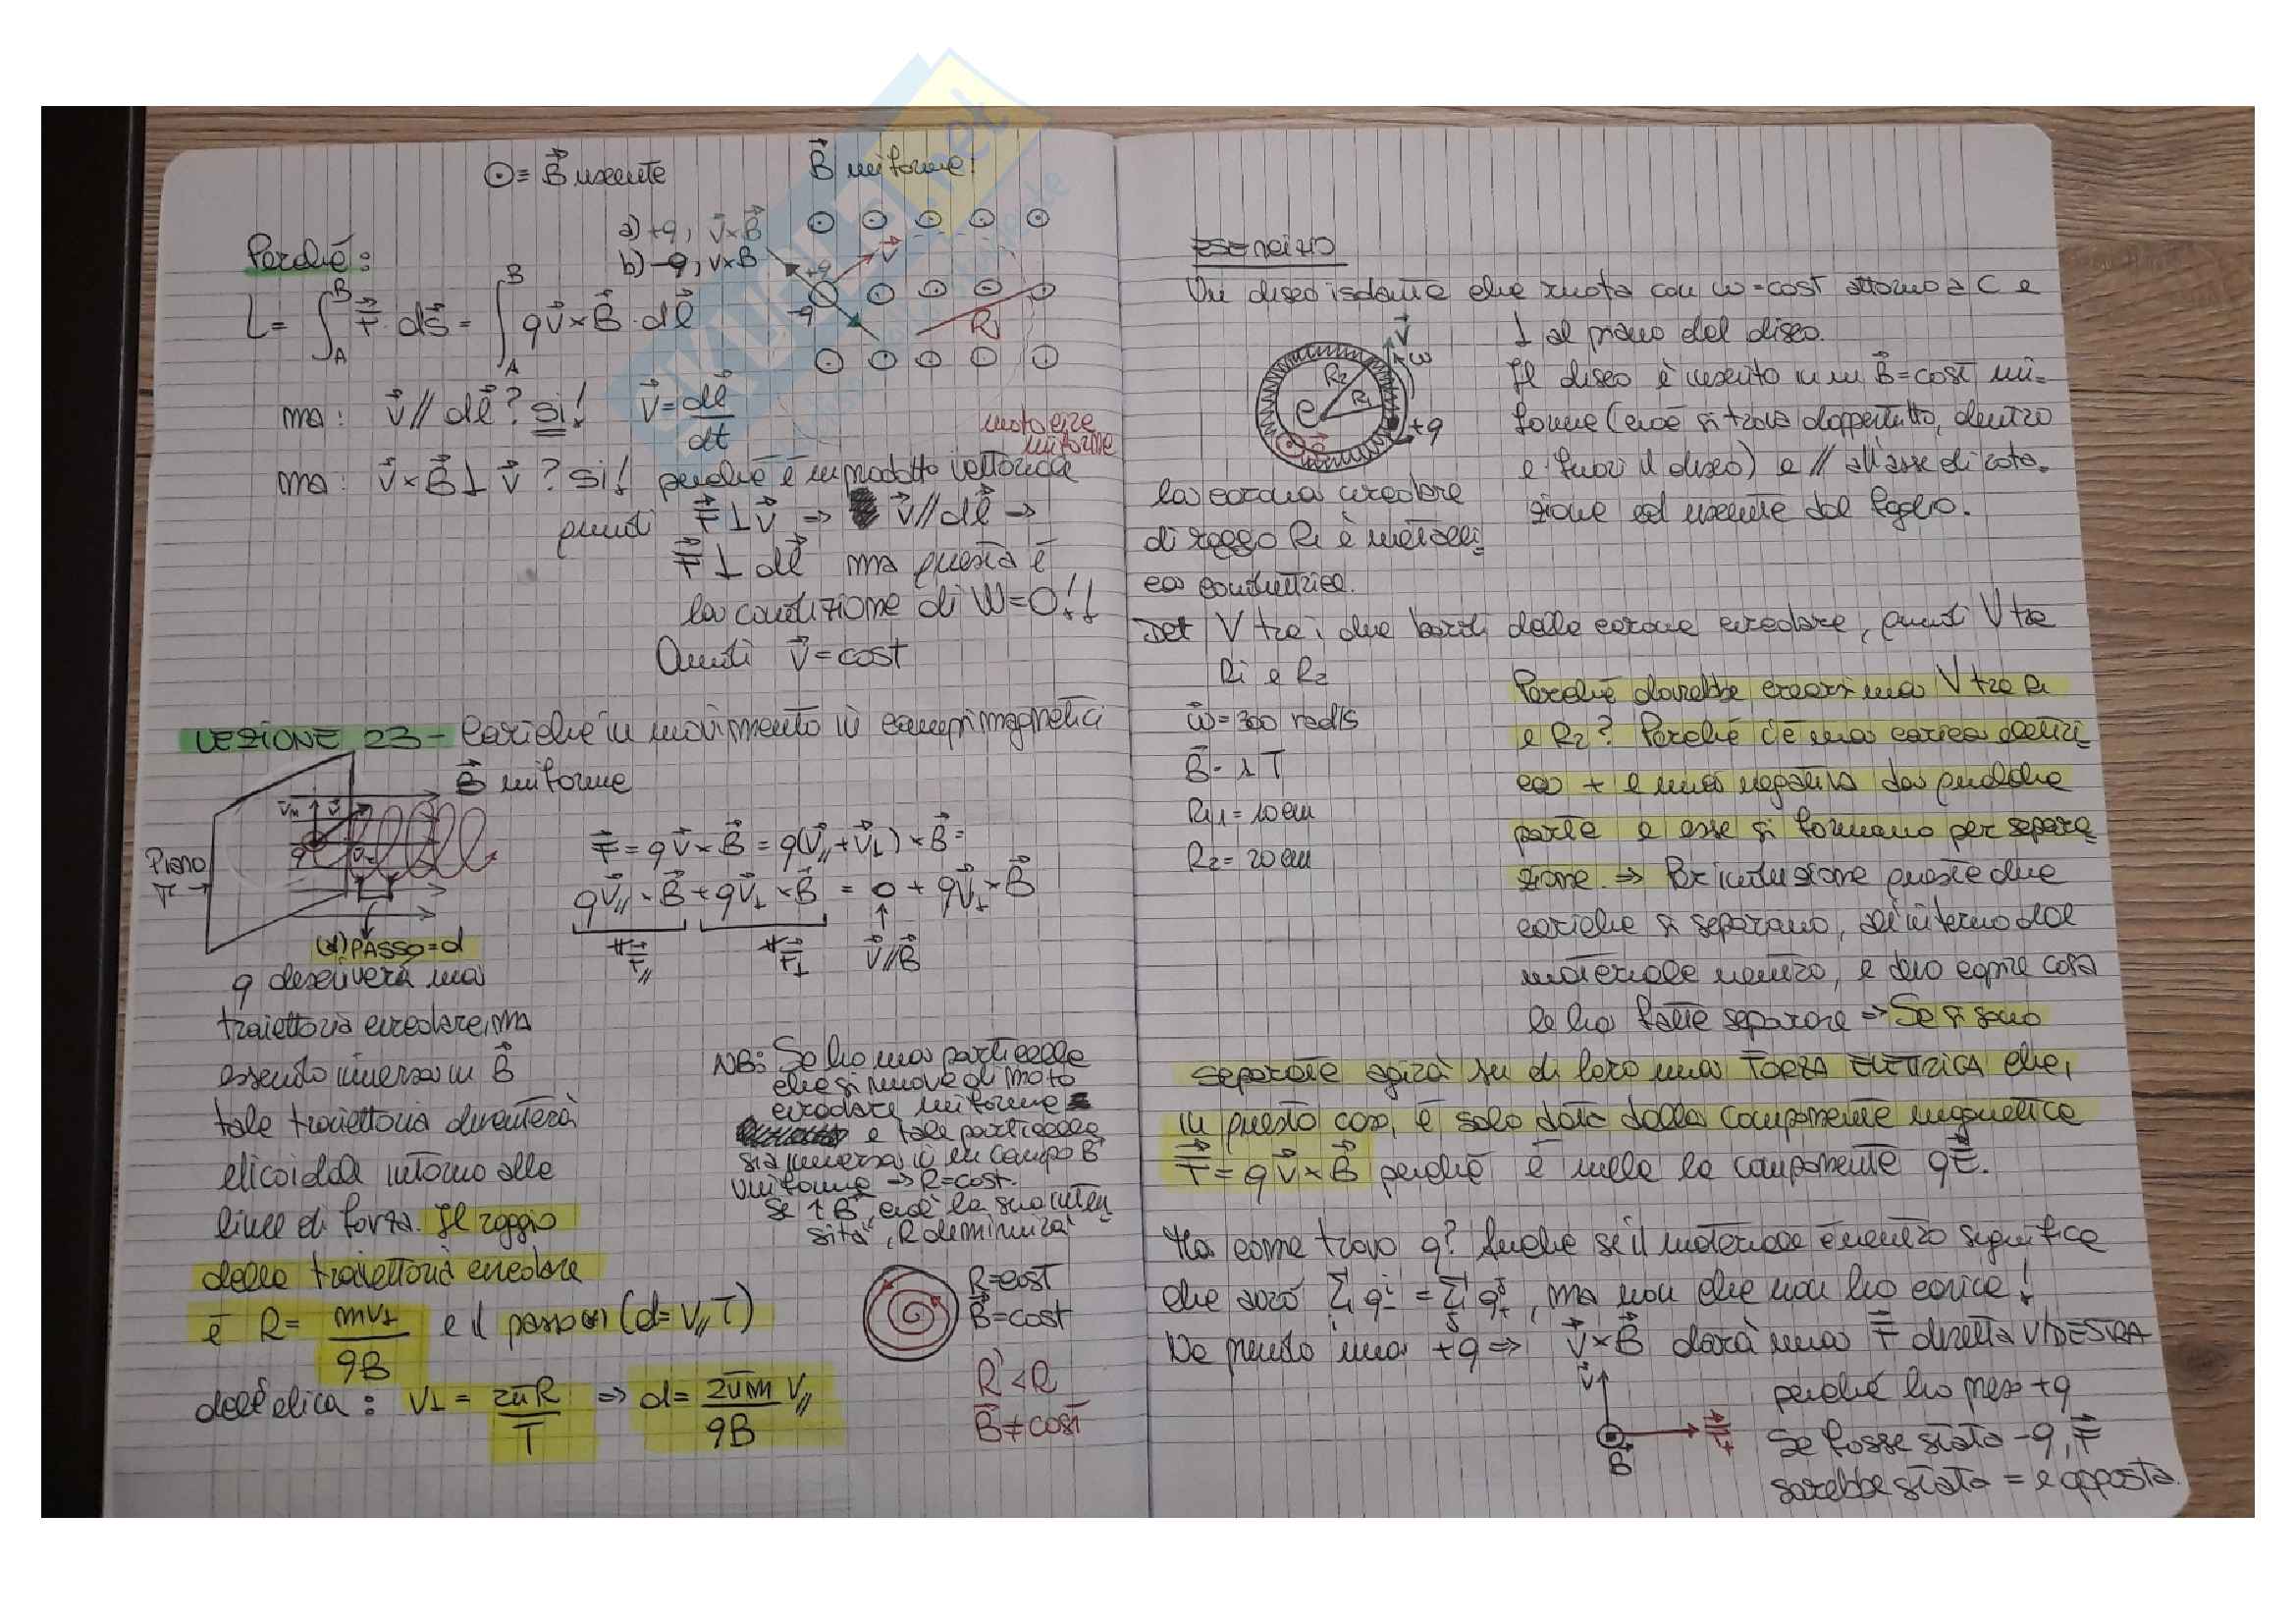 ⊙ = B⃗ uscente
B⃗ uniforme:
Perché:
a) +q, v⃗×B⃗
b) -q, v×B
+q
v⃗
-q
R
L = ∫_A^B F⃗·ds⃗ = ∫_A^B qv⃗×B⃗·dl⃗
ma: v⃗ // dl⃗? si! v⃗ = dl⃗/dt
moto circ
uniforme
ma: v⃗×B⃗ ⊥ v⃗? si! perché è un prodotto vettoriale
quindi F⃗ ⊥ v⃗ ⇒ v⃗ // dl⃗ →
F⃗ ⊥ dl⃗ ma questa è
la condizione di W=0!!
Quindi v⃗ = cost
LEZIONE 23 - Cariche in movimento in campi magnetici
B⃗ uniforme
v⃗
q
Piano
π →
(d) PASSO = d
F⃗ = qv⃗×B⃗ = q(v⃗// + v⃗⊥)×B⃗ =
qv⃗//×B⃗ + qv⃗⊥×B⃗ = 0 + qv⃗⊥×B⃗
F⃗// F⃗⊥ v⃗//B⃗
q descriverà una
traiettoria circolare, ma
essendo immersa in B⃗
tale traiettoria diventerà
elicoidale intorno alle
linee di forza. Il raggio
della traiettoria circolare
è R = mv⊥/qB e il passo (d = v// T)
dell'elica: v⊥ = 2πR/T ⇒ d = 2πm v// / qB
NB: Se ho una particella
che si muove di moto
circolare uniforme
e tale particella
sia immersa in un campo B⃗
uniforme → R=cost.
Se ↑B⃗, cioè la sua inten
sità, R diminuirà
R=cost
B⃗=cost
R' < R
B⃗ ≠ cost
Esercizio
Un disco isolante che ruota con ω=cost attorno a C e
⊥ al piano del disco.
Il disco è inserito in un B⃗=cost uni-
forme (cioè si trova dappertutto, dentro
e fuori il disco) e // all'asse di rota-
zione ed uscente dal foglio.
v⃗
ω
R2
C
R1
+q
B⃗
La corona circolare
di raggio R1 è metalli-
ca conduttrice.
Det V tra i due bordi della corona circolare, quindi V tra
R1 e R2
ω⃗ = 300 rad/s
B⃗ = 1 T
R1 = 10 cm
R2 = 20 cm
Perché dovrebbe crearsi una V tra R1
e R2? Perché c'è una carica elettri-
ca + e una negativa da qualche
parte e esse si formano per separa-
zione. ⇒ Per induzione queste due
cariche si separano, all'interno del
materiale neutro, e devo capire cosa
le ha fatte separare ⇒ Se si sono
separate agirà su di loro una FORZA ELETTRICA che,
in questo caso, è solo data dalla componente magnetica
F⃗ = qv⃗×B⃗ perché è nulla la componente qE⃗.
Ma come trovo q? Anche se il materiale è neutro significa
che avrò Σ q₋ = Σ q₊, ma non che non ho carica!
Se prendo una +q ⇒ v⃗×B⃗ darà una F⃗ diretta V/DESTRA
perché ho preso +q
Se fosse stata -q, F⃗
sarebbe stata = e opposta.
v⃗
B⃗
F⃗+